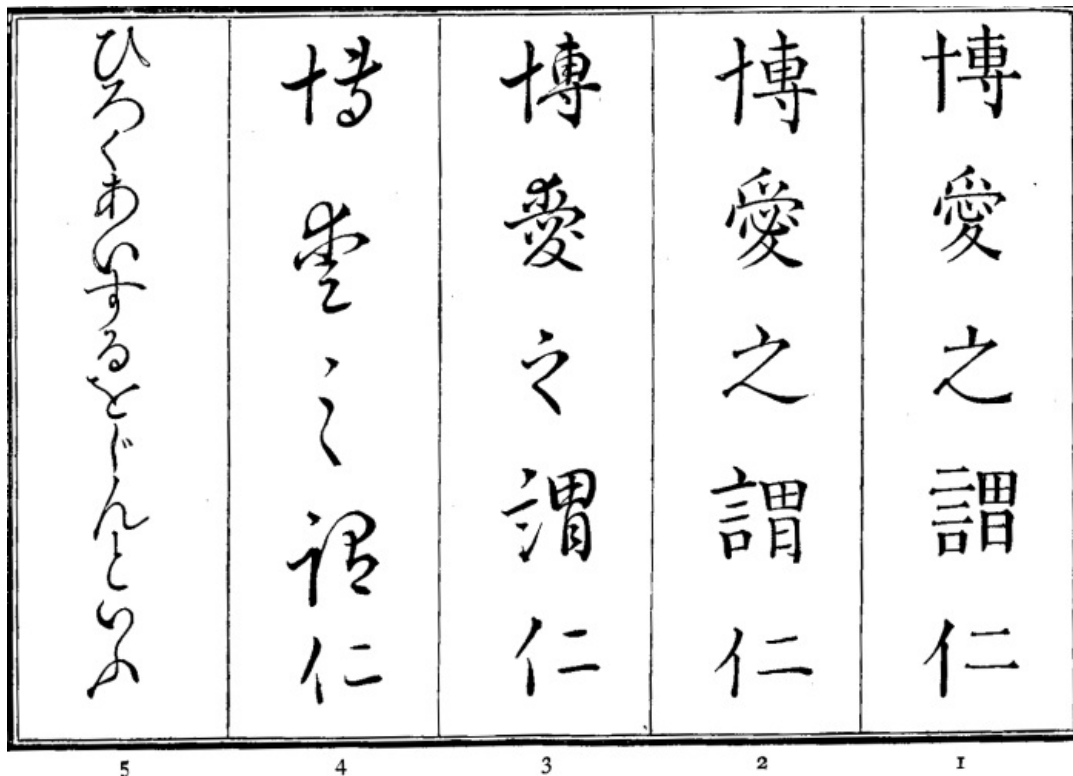 博愛之謂仁
博愛之謂仁
博愛之謂仁
博愛之謂仁
ひろくあいするをじんといふ
1
2
3
4
5